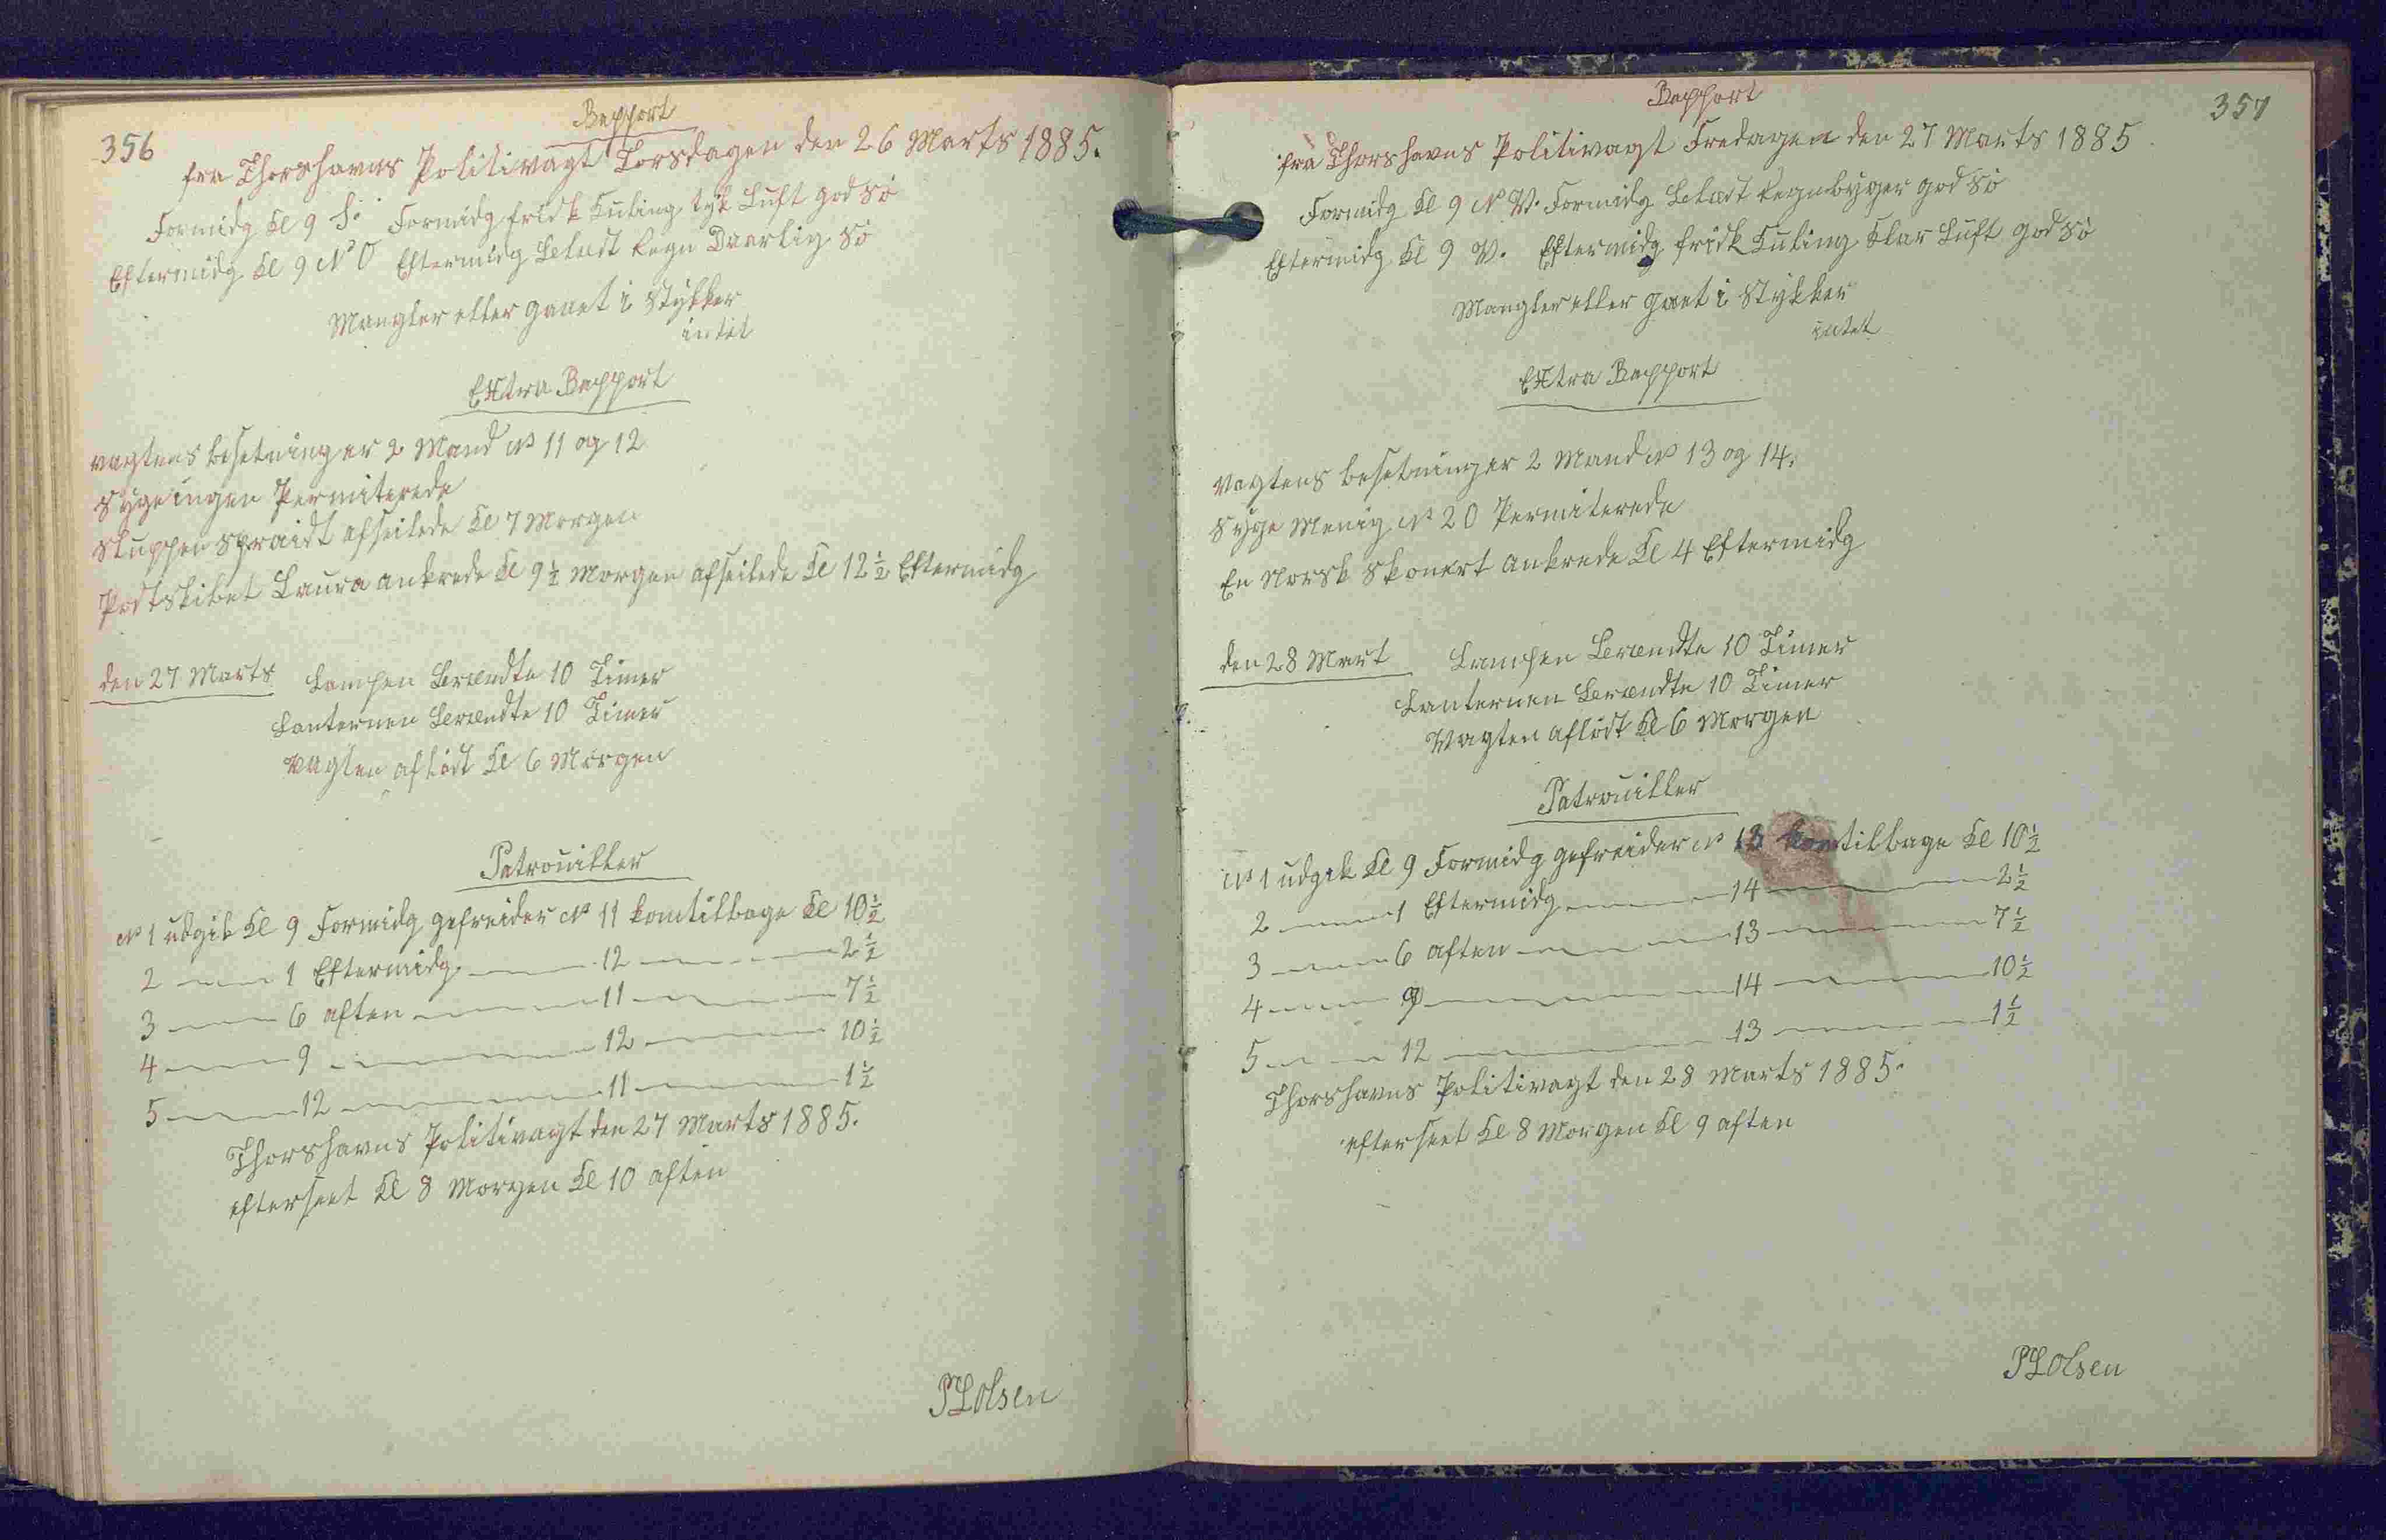 356
Rapport
fra Thorshavns Politivagt Torsdagen den 26 Marts 1885.
Formidg Kl 9 S. Formidg frisk Kuling tyk Luft god Sö
Eftermidg Kl 9 NO Eftermidg Labert Regn Daarlig Sö
Mangler eller gaaet i Stykker
intet
Extra Rapport
Vagtens besetning er 2 Mand No 11 og 12
Syge ingen Permiterede
Sluppen afseilede Kl 7 Morgen
Postskibet Laura ankrede Kl 9½ Morgen afseilede Kl 12½ Eftermidg
den 27 Marts Lampen Brændte 10 Timer
Lanternen Brændte 10 Timer
Vagten aflöst Kl 6 Morgen
Patrouiller
No 1 udgik Kl 9 Formidg gefreider No 11 kom tilbage Kl 10½
2 — 1 Eftermidg — 12 — 2½
3 — 6 aften — 11 — 7½
4 — 9 — 12 — 10½
5 — 12 — 11 — 1½
Thorshavns Politivagt den 27 Marts 1885.
efterseet Kl 8 Morgen Kl 10 aften
PLOlsen
357
Rapport
fra Thorshavns Politivagt Fredagen den 27 Marts 1885
Formidg Kl 9 NV. Formidg Labert Regnbyger god Sö
Eftermidg Kl 9 V. Eftermidg frisk Kuling Klar Luft god Sö
Mangler eller gaaet i Stykker
intet
Extra Rapport
Vagtens besetning er 2 Mand No 13 og 14.
Syge Menig No 20 Permiterede
En Norsk Skonert ankrede Kl 4 Eftermidg
den 28 Mart Lampen Brændte 10 Timer
Lanternen Brændte 10 Timer
Vagten aflöst Kl 6 Morgen
Patrouiller
No 1 udgik Kl 9 Formidg gefreider No 13 kom tilbage Kl 10½
2 — 1 Eftermidg — 14 — 2½
3 — 6 aften — 13 — 7½
4 — 9 — 14 — 10½
5 — 12 — 13 — 1½
Thorshavns Politivagt den 28 Marts 1885.
efterseet Kl 8 Morgen Kl 9 aften
PLOlsen